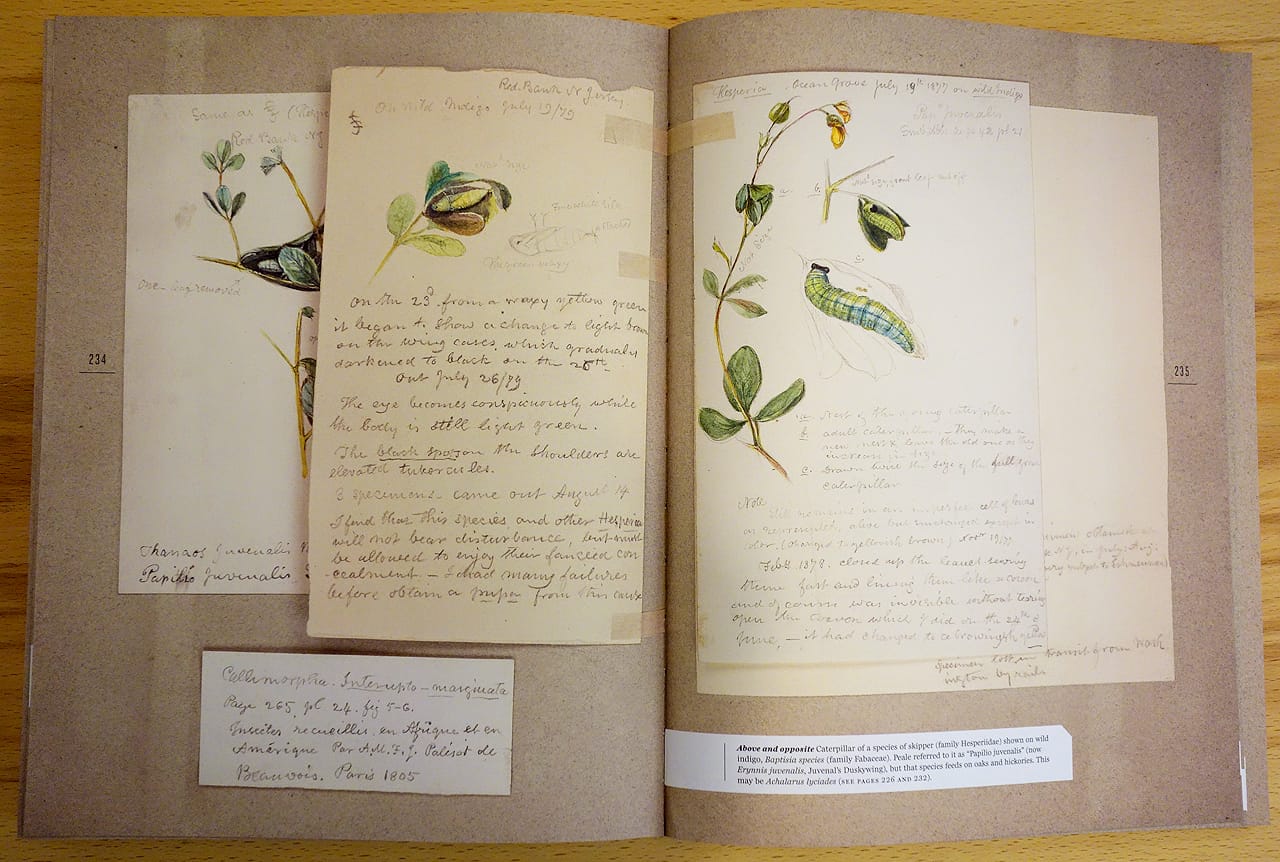 234
Same as
Red Bank N J
One leaf removed
Thanaos Juvenalis
Papilio Juvenalis
Red Bank N Jersey
On wild Indigo July 19/79
Nat. size
On the 23d from a waxy yellow green
it began to show a change to light brown
on the wing cases, which gradually
darkened to black on the 25th
Out July 26/79
The eye becomes conspicuously white
the body is still light green.
The black spots on the shoulders are
elevated tubercules.
3 specimens came out August 14
I find that this species and other Hesperia
will not bear disturbance, but must
be allowed to enjoy their fancied con
cealment — I had many failures
before obtain a pupa from this cause
Callimorpha. Interupto-marginata
Page 265, pl 24. fig 5-6.
Insectes recueillis en Afrique et en
Amérique Par A.M.F.J. Palisot de
Beauvois. Paris 1805
Hesperia Ocean Grove July 19th 1877 on wild Indigo
Pap Juvenalis
a.
b.
Nat Size
c.
a Nest of the young caterpillar
b adult caterpillar, — They make a
new nest & leave the old one as they
increase in size
c. Drawn twice the size of the full grown
caterpillar
Note
Still remains in an imperfect cell of leaves
as represented, alive but unchanged except in
color (changed to yellowish brown) Novr 19/77
Feby 1878. closed up the leaves sewing
them fast and lining them like a cocoon
and of course was invisible without tearing
open the cocoon which I did on the 24th of
June, — it had changed to a brownish
specimen lost in transit from Wash
ington by rail
235
Above and opposite Caterpillar of a species of skipper (family Hesperiidae) shown on wild
indigo, Baptisia species (family Fabaceae). Peale referred to it as “Papilio juvenalis” (now
Erynnis juvenalis, Juvenal’s Duskywing), but that species feeds on oaks and hickories. This
may be Achalarus lyciades (SEE PAGES 226 AND 232).